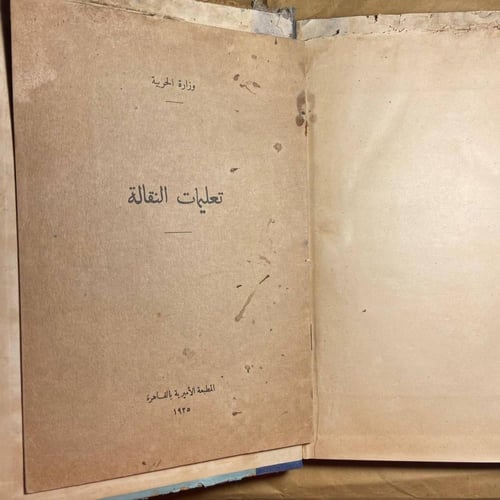 وزارة الحربية
تعليمات النقالة
المطبعة الأميرية بالقاهرة
١٩٢٥